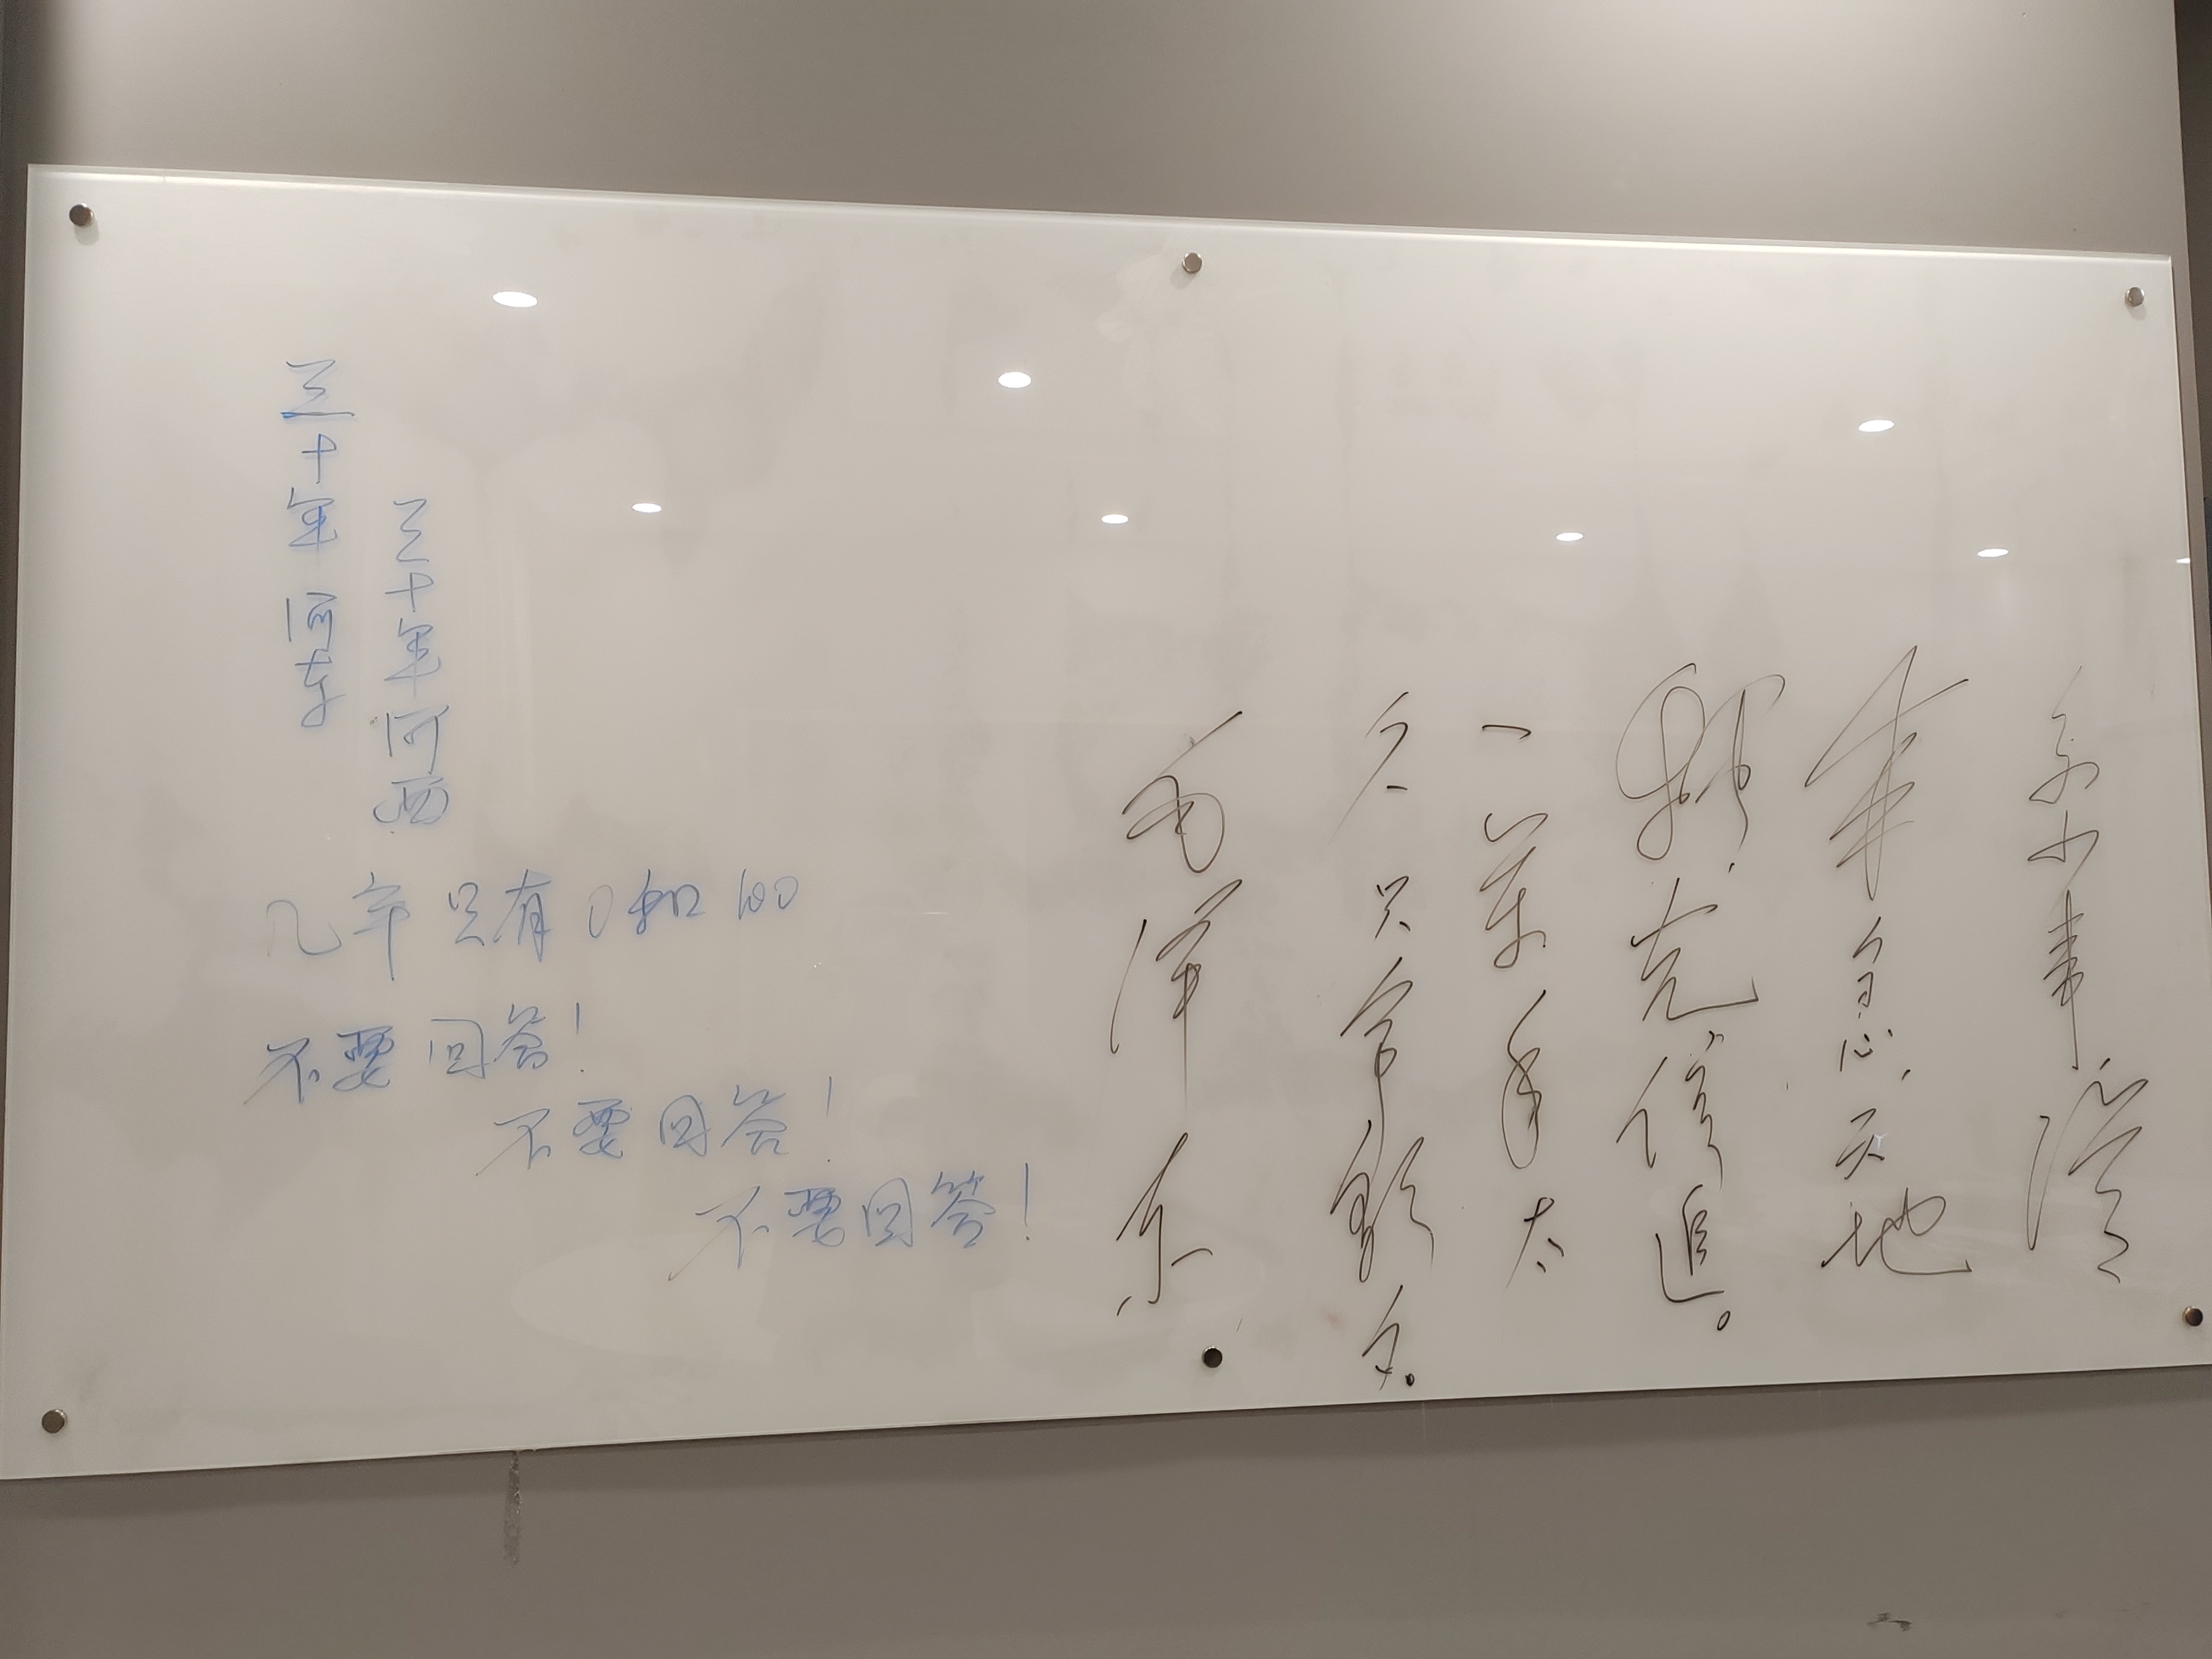 三十年河东
三十年河西
几率只有0和100
不要回答!
不要回答!
不要回答!
多少事,從
來急,天地
轉,光陰迫。
一萬年太
久,只争朝夕。
毛泽东